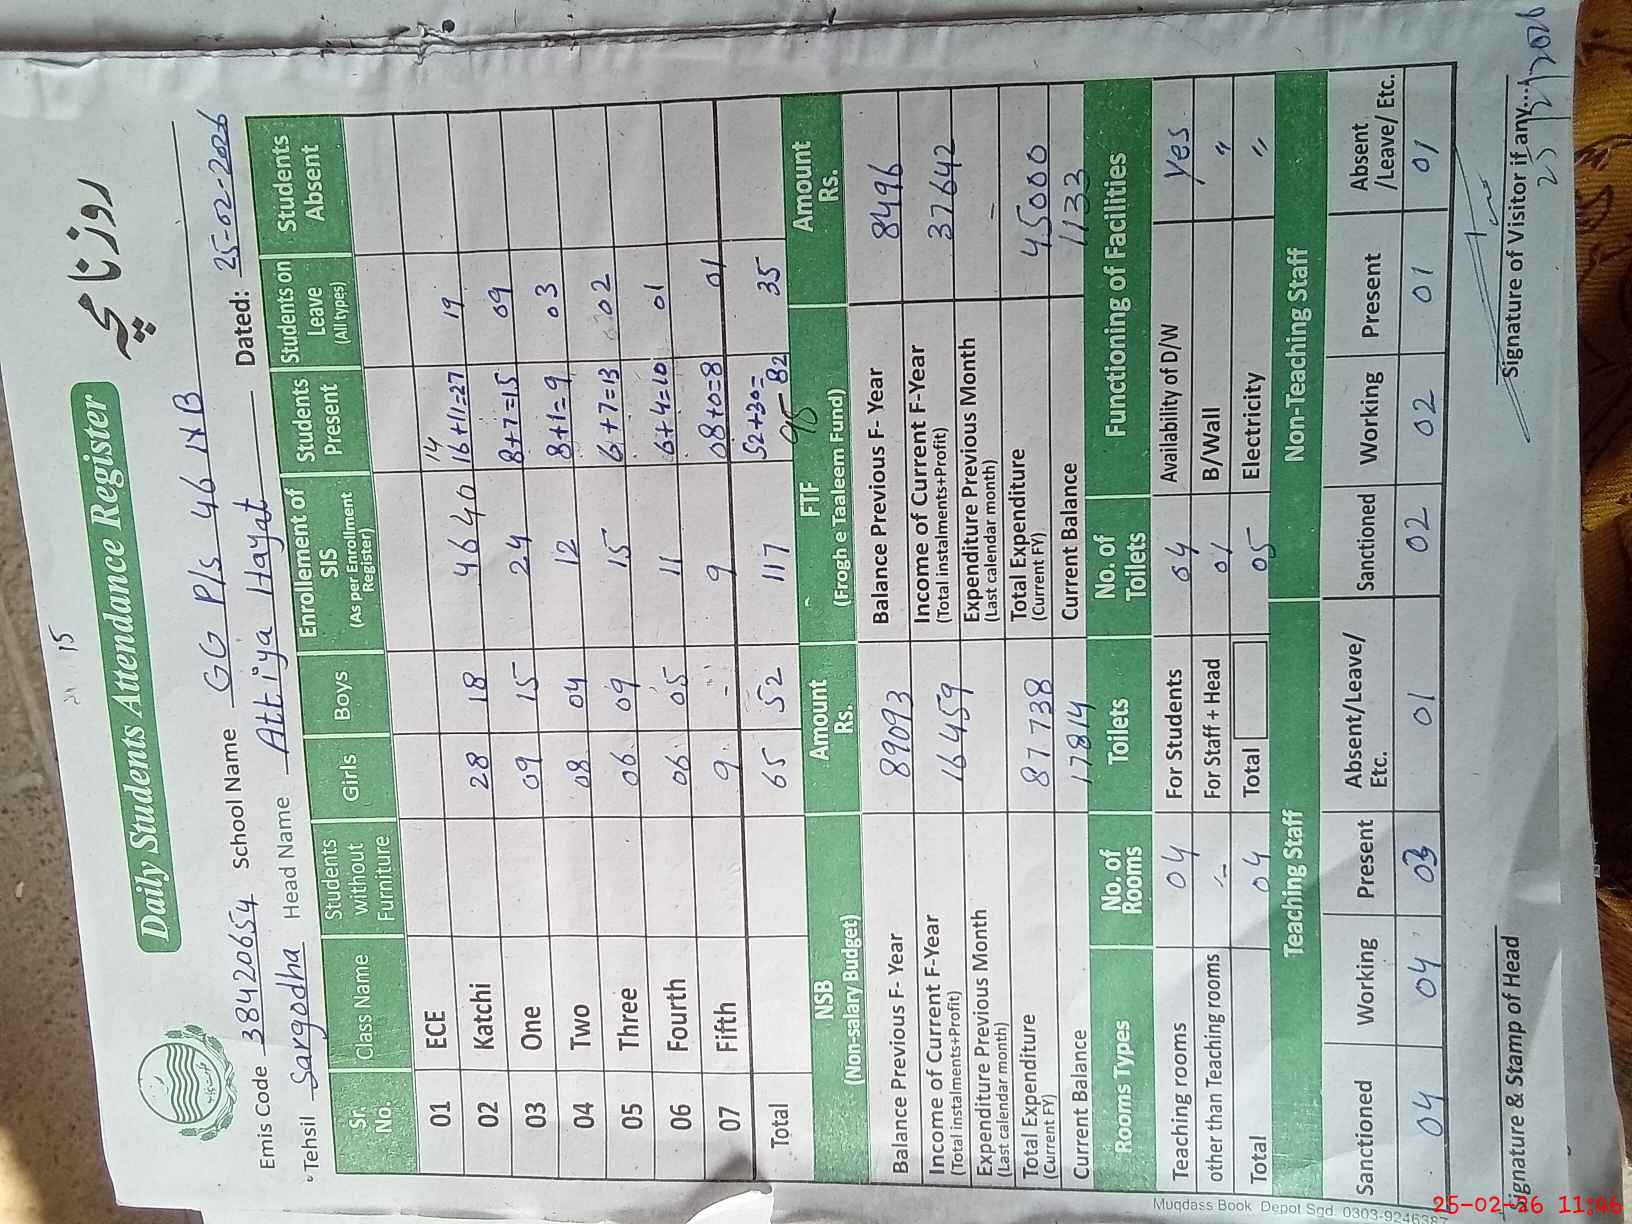 15
Daily Students Attendance Register
روزنامچہ
Emis Code 38420654 School Name GG P/s 46 NB
Tehsil Sargodha Head Name Attiya Hayat Dated: 25-02-2026
Sr. No. Class Name Students without Furniture Girls Boys Enrollement of SIS (As per Enrollment Register) Students Present Students on Leave (All types) Students Absent
01 ECE 14
02 Katchi 28 18 46 40 16+11=27 19
03 One 09 15 24 8+7=15 09
04 Two 08 04 12 8+1=9 03
05 Three 06 09 15 6+7=13 02
06 Fourth 06 05 11 6+4=10 01
07 Fifth 9 - 9 08+0=8 01
Total 65 52 117 52+30=82 35
95
NSB (Non-salary Budget) Amount Rs. FTF (Frogh e Taaleem Fund) Amount Rs.
Balance Previous F- Year 89093 Balance Previous F- Year 8496
Income of Current F-Year (Total instalments+Profit) 16459 Income of Current F-Year (Total instalments+Profit) 37642
Expenditure Previous Month (Last calendar month) Expenditure Previous Month (Last calendar month) -
Total Expenditure (Current FY) 87738 Total Expenditure (Current FY) 45000
Current Balance 17814 Current Balance 1133
Rooms Types No. of Rooms Toilets No. of Toilets Functioning of Facilities
Teaching rooms 04 For Students 04 Availability of D/W Yes
other than Teaching rooms - For Staff + Head 01 B/Wall "
Total 04 Total 05 Electricity "
Teaching Staff Non-Teaching Staff
Sanctioned Working Present Absent/Leave/ Etc. Sanctioned Working Present Absent /Leave/ Etc.
04 04 03 01 02 02 01 01
Signature & Stamp of Head Signature of Visitor if any...
25/2/2026
Muqdass Book Depot Sgd. 0303-9246387
25-02-26 11:46